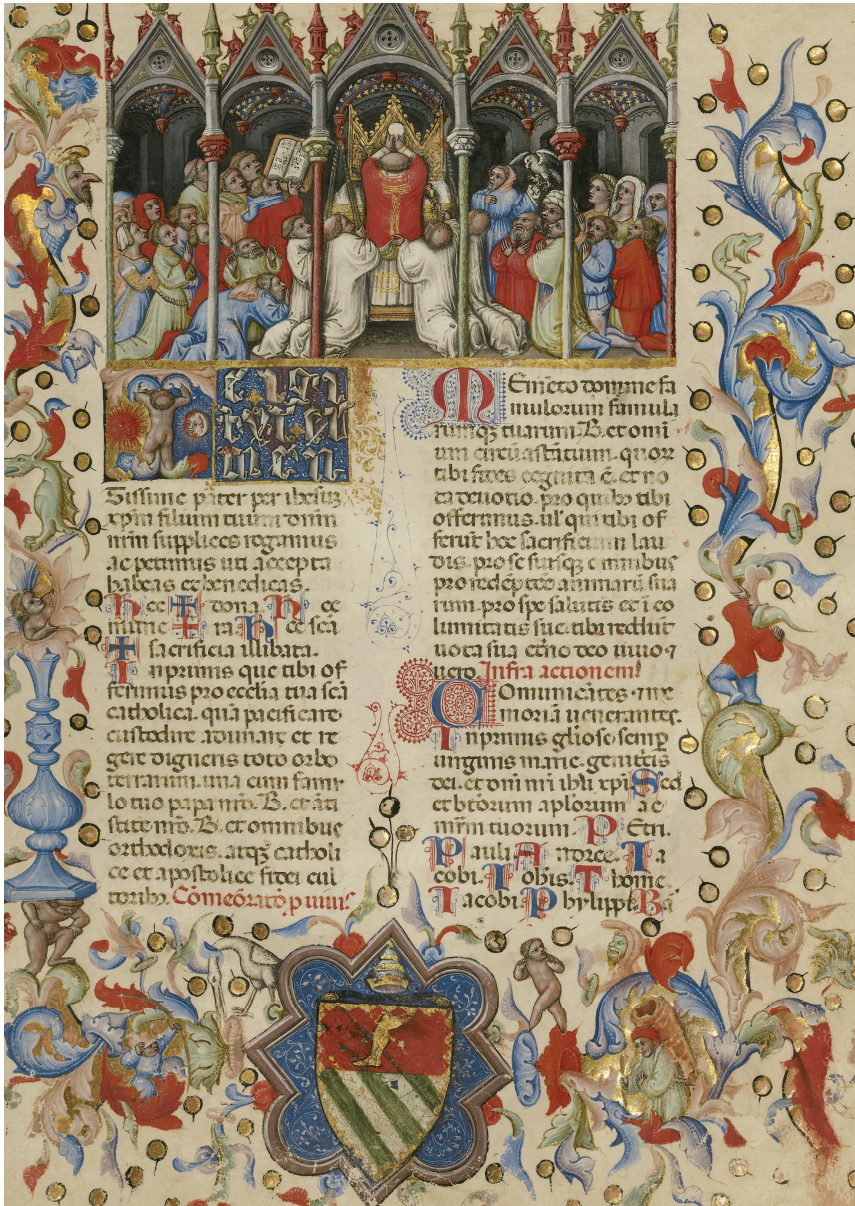 Te igi
tur cle
men
tissime pater per ihesuz
xpm filium tuum dnm
nrm supplices rogamus
ac petimus uti accepta
habeas et benedicas.
hec ✝ dona. hec
munera ✝ hec scā
✝ sacrificia illibata.
Inprimis que tibi of
ferimus pro ecclia tua scā
catholica. quā pacificare
custodire adunare et re
gere digneris toto orbe
terrarum. una cum famu
lo tuo papa nrō. B. et āti
stite nrō. B. et omnibus
orthodoxis. atqz catholi
ce et apostolice fidei cul
toribz. Comeōratō p uiuis
Memēto domine fa
mulorum famula
rumqz tuarum B. et omī
um circū astātium. quor
tibi fides cognita ē. et no
ta deuotio. pro quibz tibi
offerimus. ul' qui tibi of
ferūt hoc sacrificium lau
dis. pro se suisqz omnibus
pro redēptōe animarū sua
rum. pro spe salutis et ī co
lumitatis sue. tibi reddūt
uota sua etno deo uiuo et
uero. Infra actionem
Comunicātes. et me
moriā uenerantes.
Inprimis gliose semp
uirginis marie. genitricis
dei. et dnī nrī ihū xpī. Sed
et btōrum aplorum ac
mrm tuorum. Petri.
Pauli. Andree. Ia
cobi. Iohis. Thome
Iacobi. Phylippi. Ba